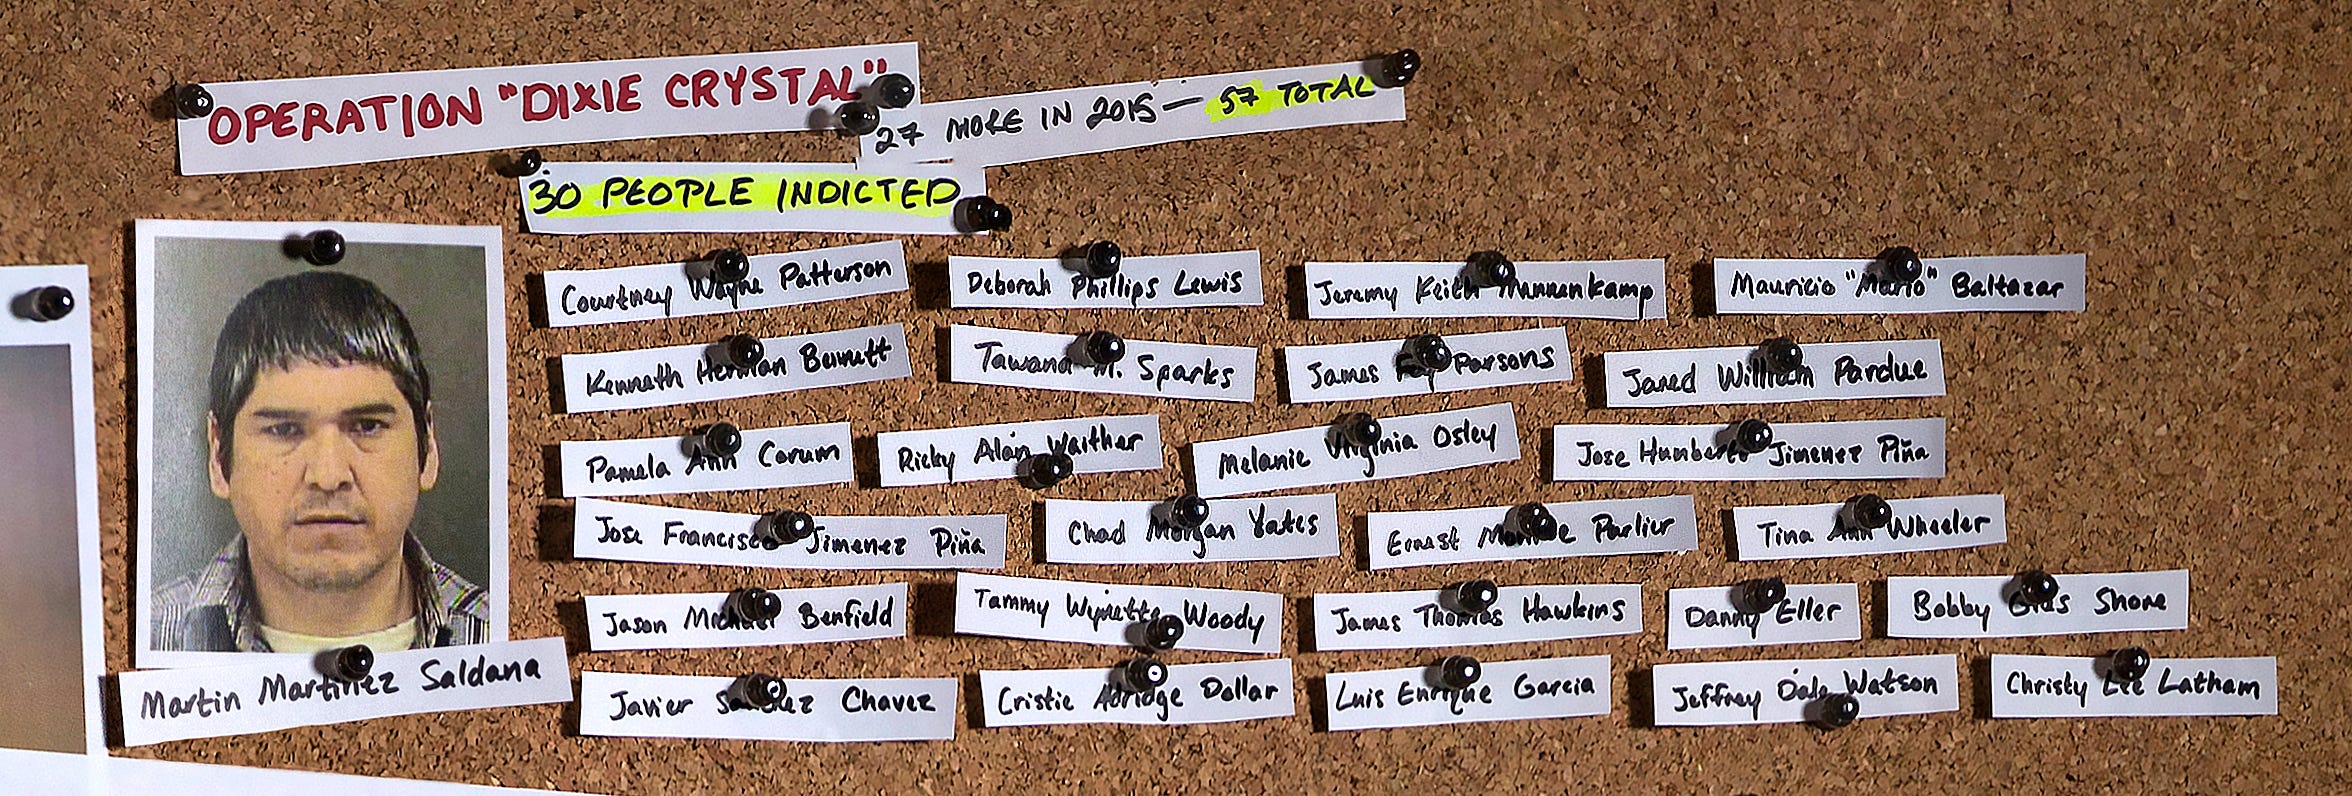 OPERATION "DIXIE CRYSTAL"
27 MORE IN 2015 — 57 TOTAL
30 PEOPLE INDICTED
Courtney Wayne Patterson
Deborah Phillips Lewis
Jeremy Keith
Mauricio "Mario" Baltazar
Kenneth Herman Bennett
Tawana M. Sparks
James Parsons
Jared William Pardue
Pamela Ann Corum
Ricky Alan Waither
Melanie Virginia Osley
Jose Humberto Jimenez Piña
Jose Francisco Jimenez Piña
Chad Morgan Yates
Ernest Monroe Parlier
Tina Ann Wheeler
Jason Michael Benfield
Tammy Wynette Woody
James Thomas Hawkins
Danny Eller
Bobby Shore
Martin Martinez Saldana
Javier Sanchez Chavez
Cristie Aldridge Dollar
Luis Enrique Garcia
Jeffrey Dale Watson
Christy Lee Latham